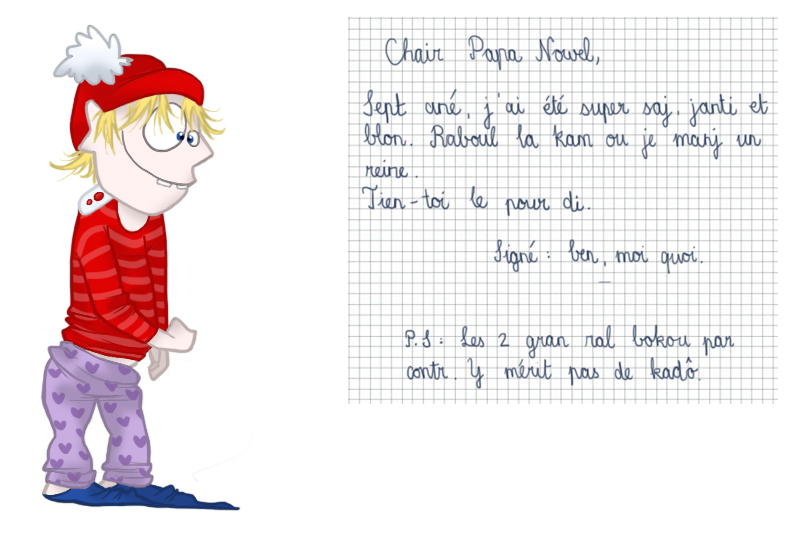 Chair Papa Nowel,
Sept ané, j'ai été super saj, janti et
blon. Raboul la kam ou je manj un
reine.
Tien-toi le pour di.
Signé : ben, moi quoi.
P.S : Les 2 gran ral bokou par
contr. Y mérit pas de kadô.